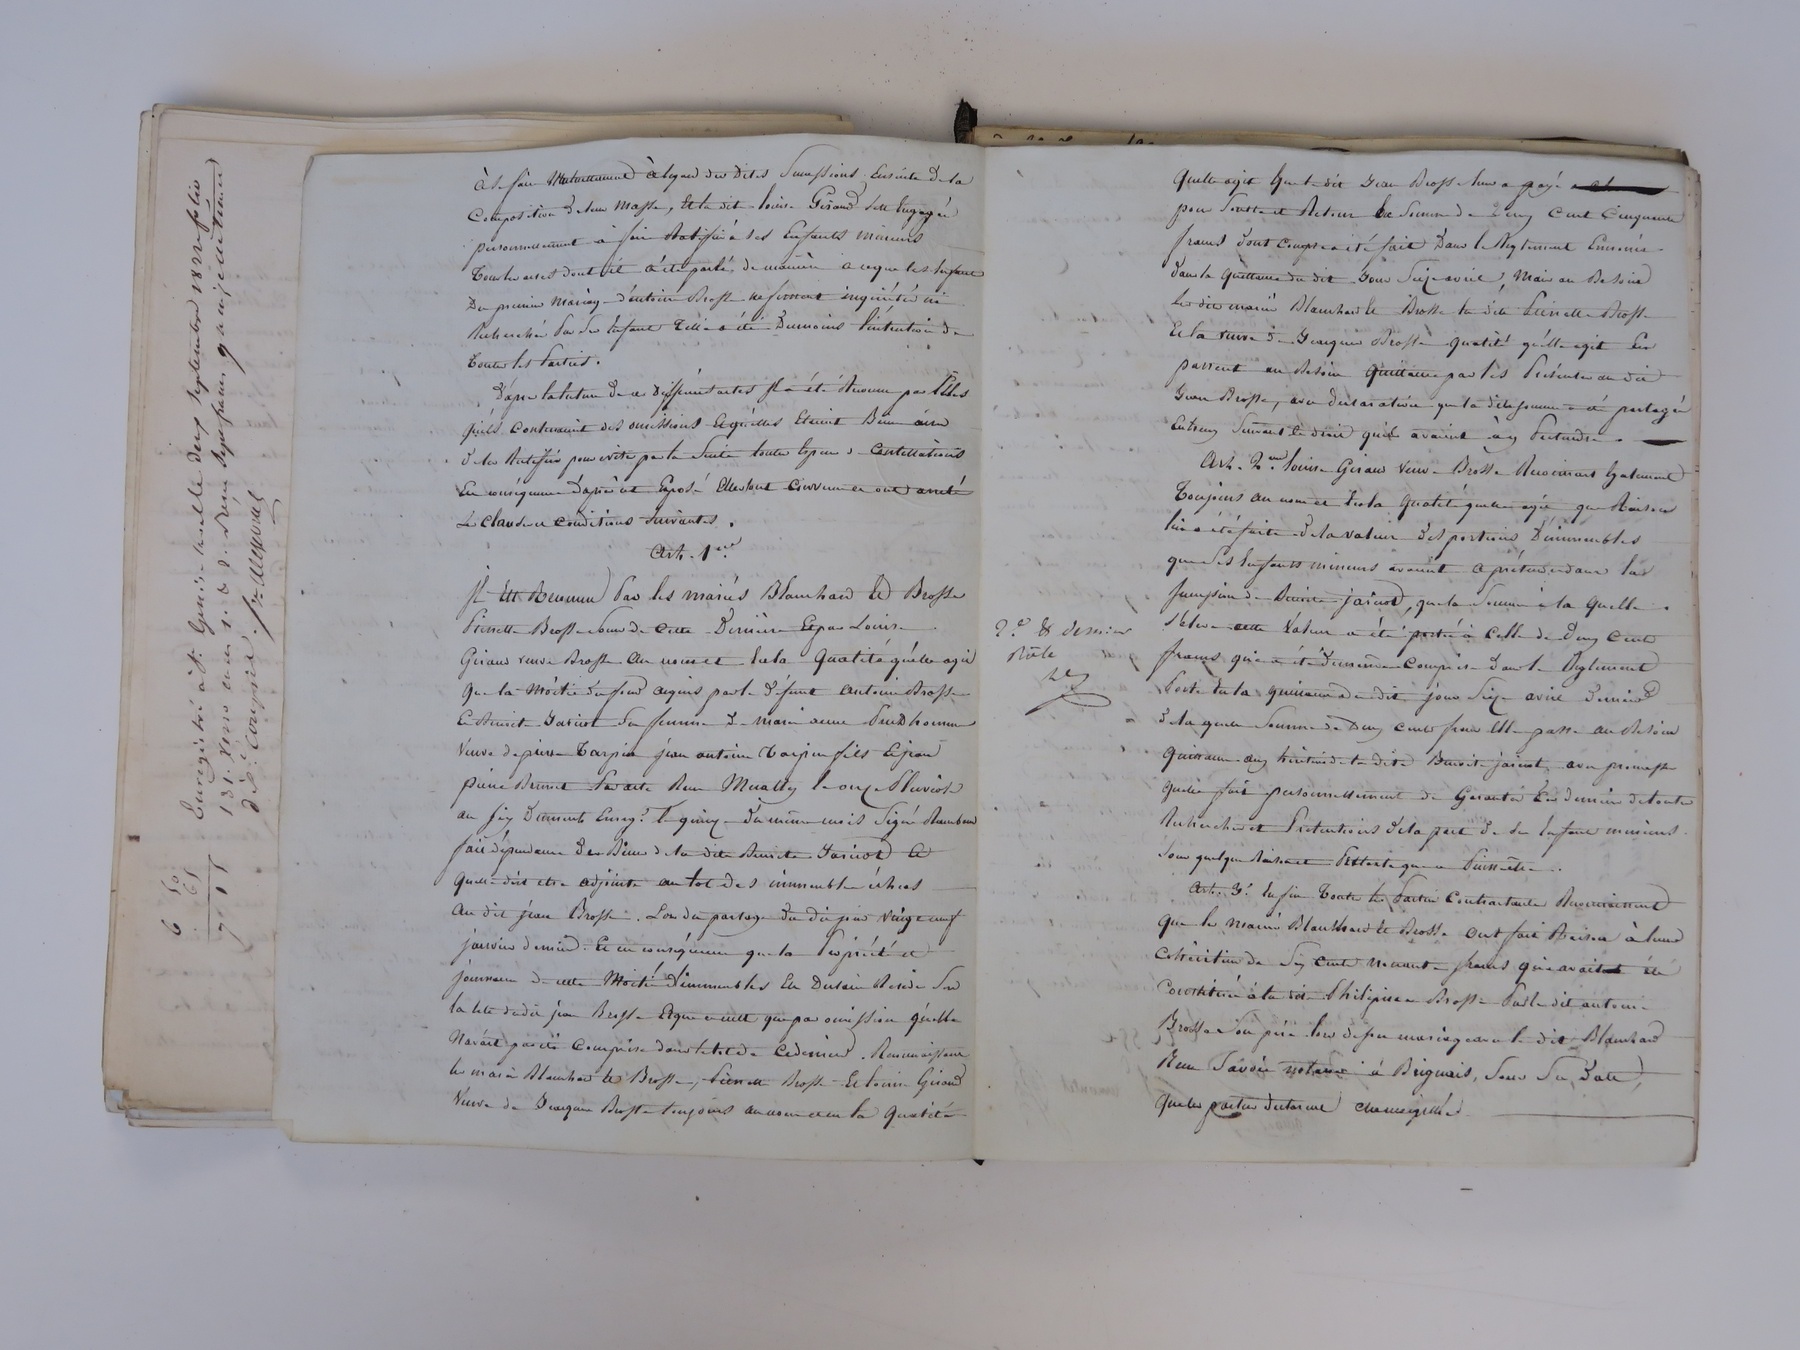 à se faire Mutuellement à légard des dites Successions Ensuite de la
Composition de leur Masse, Et la dite Louise Giraud s'est Engagée
personnellement à faire Ratifier à ses Enfants mineurs
Tous les actes dont il a été parlé, de manière a ceque les Enfans
Du premier Mariage d'antoine Brosse ne fussent inquiétés ni
Recherchés Par Ses Enfans Telle a été Dumoins l'intention de
Toutes les Parties.
D'après la lecture de ces différents actes Il a été Reconnu par Elles
qu'ils contenaient des omissions Et qu'elles Etaient Bien aises
de les Rectifier pour éviter par la Suite toutes Espèces de Contestations
En conséquence d'après cet Exposé Elles sont Convenues et ont arrêté
Les clauses et conditions Suivantes.
Art. 1er
Il Est Reconnu Par les mariés Blanchard et Brosse
Pierrette Brosse Soeur de cette Dernière Et par Louise
Giraud veuve Brosse au nom et En la Qualité qu'elle agit
Que la Moitié du fond acquis par le Défunt Antoine Brosse
Et Benoite Jaricot Sa femme de marie anne Prudhomme
Veuve de pierre Tarpin jean antoine Tarpin fils Et jean
pierre Brunet Par acte Reçu le onze Pluviose
an Six Dument Enreg.é le quinze du même mois Signé
fait dépendance des Biens de la dite Benoite Jaricot
Quelle doit etre adjointe au lot des immeubles échus
Au dit jean Brosse. Lors du partage du dit jour vingt neuf
janvier dernier. Et en conséquence que la Propriété et
jouissance de cette Moitié d'immeubles Est Demain Réside Sur
la tête du dit jean Brosse Et que ce n'est que par omission qu'elle
N'avait pas été Comprise dans le lot de ce dernier. Reconnaissent
les mariés Blanchard et Brosse, Pierrette Brosse Et Louise Giraud
Veuve de Jacques Brosse toujours au nom et en la Qualité
Quelle agit Que le dit Jean Brosse leur a payé
pour Soulte et Retour la Somme de Deux Cent Cinquante
francs Dont Compte a été fait Dans le Réglement Enoncé
dans la Quittance du dit Jour Seize avril, Mais au Besoin
Les dits mariés Blanchard et Brosse la dite Pierrette Brosse
Et la veuve de Jacques Brosse qualité qu'elle agit En
passent au Besoin Quittance par les Présentes au dit
Jean Brosse, avec déclaration que la dite somme a été partagée
Entreux Suivant le droit qu'ils avaient à y Prétendre.
Art. 2.me Louise Giraud Veuve Brosse Reconnait Egalement
Toujours au nom et En la Qualité quelle agit que Raison
lui a été faite de la valeur des portions D'immeubles
que Ses Enfants mineurs avaient a prétendre dans la
Succession de Benoite Jaricot, que la Somme à la Quelle
S'éleve cette Valeur a été portée à Celle de Deux Cents
francs qui a été Comprise Dans le Réglement
Porté En la quittance du dit jour Seize avril Dernier
de la quelle Somme de Deux cents francs Elle passe au Besoin
Quittance aux héritiers de la dite Benoite jaricot, avec promesse
Quelle fait personnellement de Garantir Ces derniers de toutes
Recherches et Prétentions de la part de Ses Enfans mineurs
Sous quelque Raison et Prétexte que ce Puisse être.
Art. 3.e Enfin Toutes les Parties Contractantes Reconnaissent
Que les Mariés Blanchard et Brosse Ont fait Raison à leurs
Cohéritiers de Six cents Nonante francs qui avait été
Constituée à la dite Philipine Brosse Par le dit antoine
Brosse Son père lors de Son mariage avec le dit Blanchard
Reçu notaire à Brignais, Sous Sa Date,
Que les parties declarent
2.e & dernier
Rôle
Enregistré à S.t Genis-Laval le deux Septembre 1822 folio
181 Verso